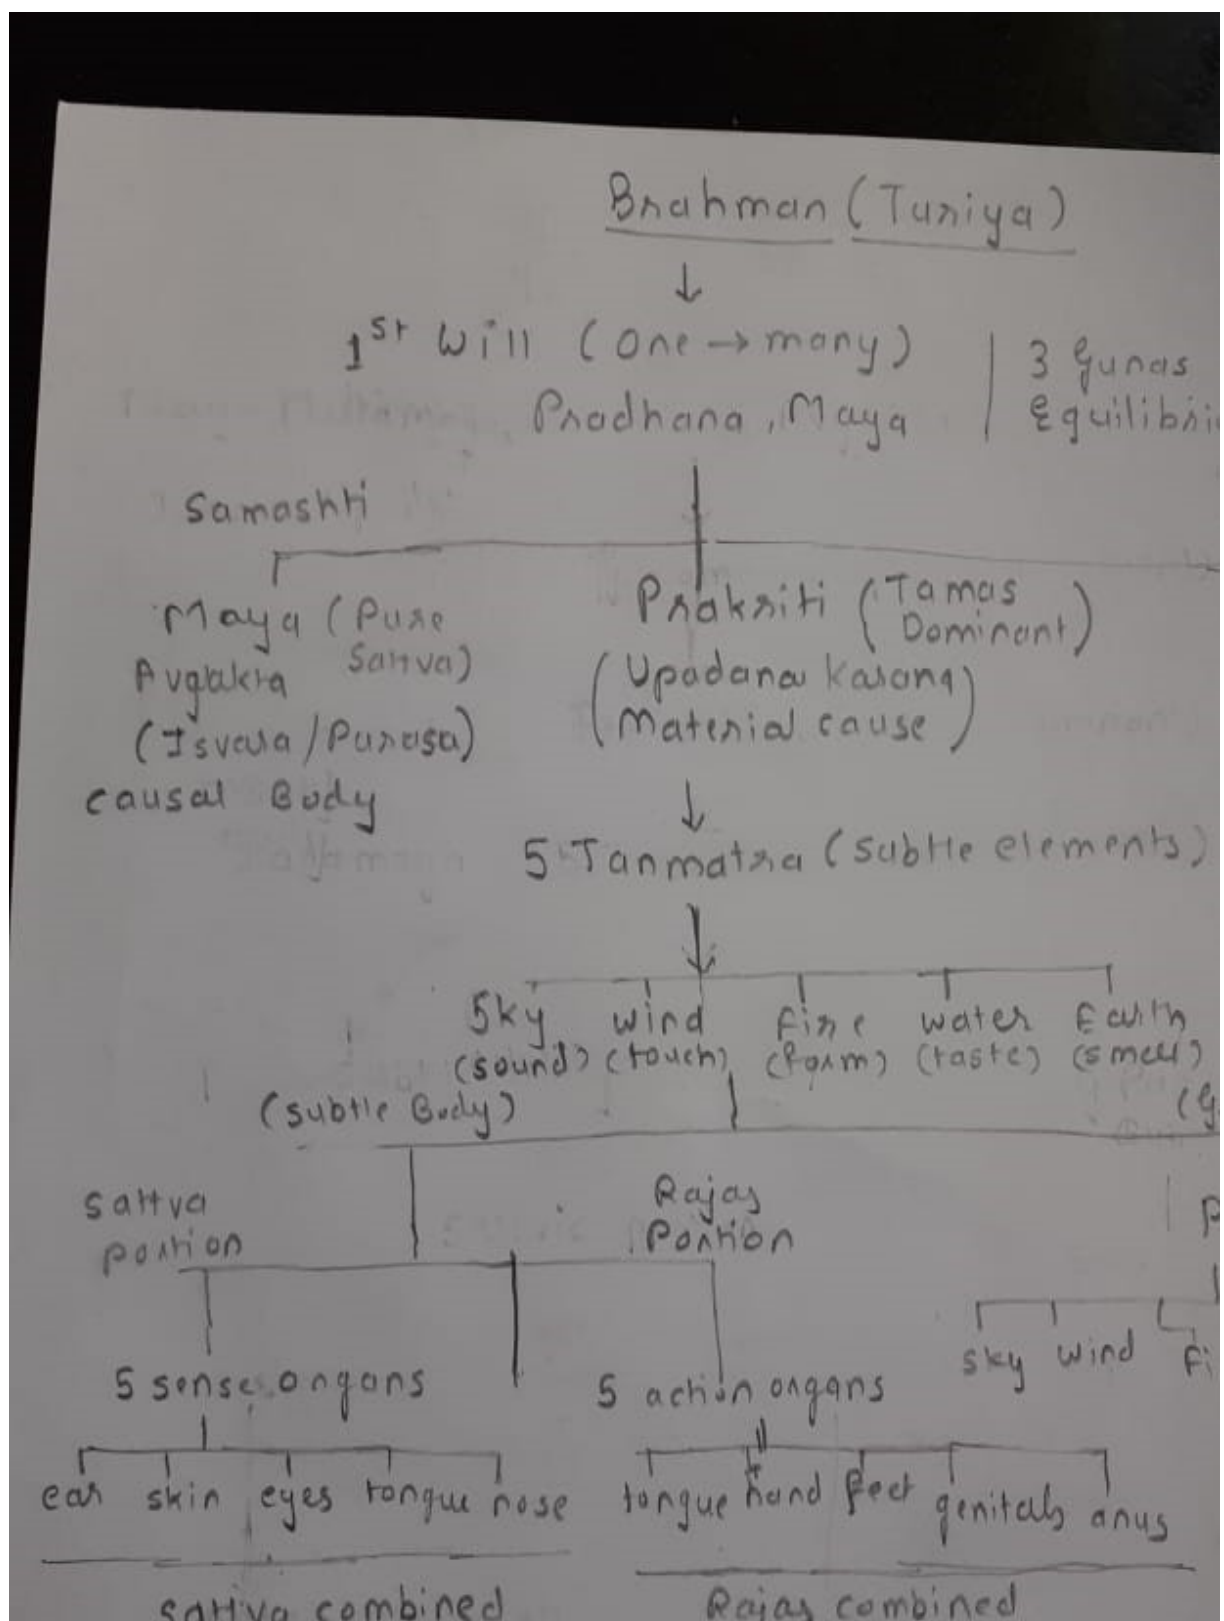 Brahman (Turiya)
↓
1st Will (One → many) | 3 Gunas
Pradhana, Maya | Equilibri
Samashti
Maya (Pure Sattva)
Avyakta
(Isvara / Purusa)
causal Body
Prakriti (Tamas Dominant)
(Upadana Karana
Material cause)
↓
5 Tanmatra (subtle elements)
↓
Sky wind fire water Earth
(sound) (touch) (form) (taste) (smell)
(subtle Body)
Sattva portion
Rajas Portion
sky wind fi
5 sense organs
5 action organs
ear skin eyes tongue nose
tongue hand feet genitals anus
sattva combined
Rajas combined